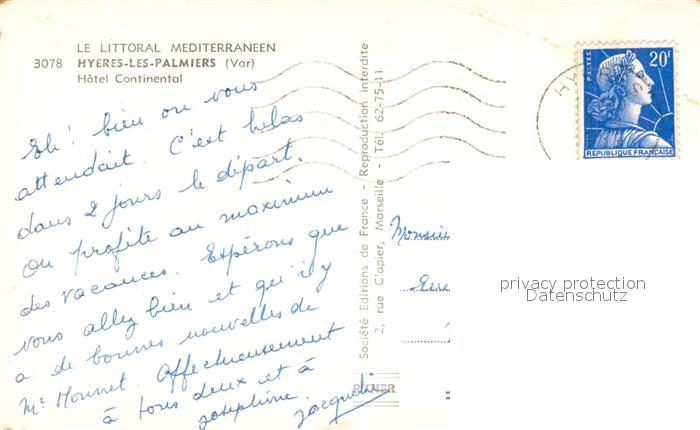 LE LITTORAL MEDITERRANEEN
3078 HYERES-LES-PALMIERS (Var)
Hôtel Continental
Eh! bien on vous
attendait. C'est hélas
dans 2 jours le départ.
On profite au maximum
des vacances. Espérons que
vous allez bien et qu'il y
a de bonnes nouvelles de
Mr Monnet. Affectueusement
à tous deux et à
Joséphine. Jacqueline
Société Editions de France - Reproduction interdite
2, rue Capier, Marseille - Tél. 62-75-11
POSTES
20F
REPUBLIQUE FRANÇAISE
Monsieu
privacy protection
Datenschutz